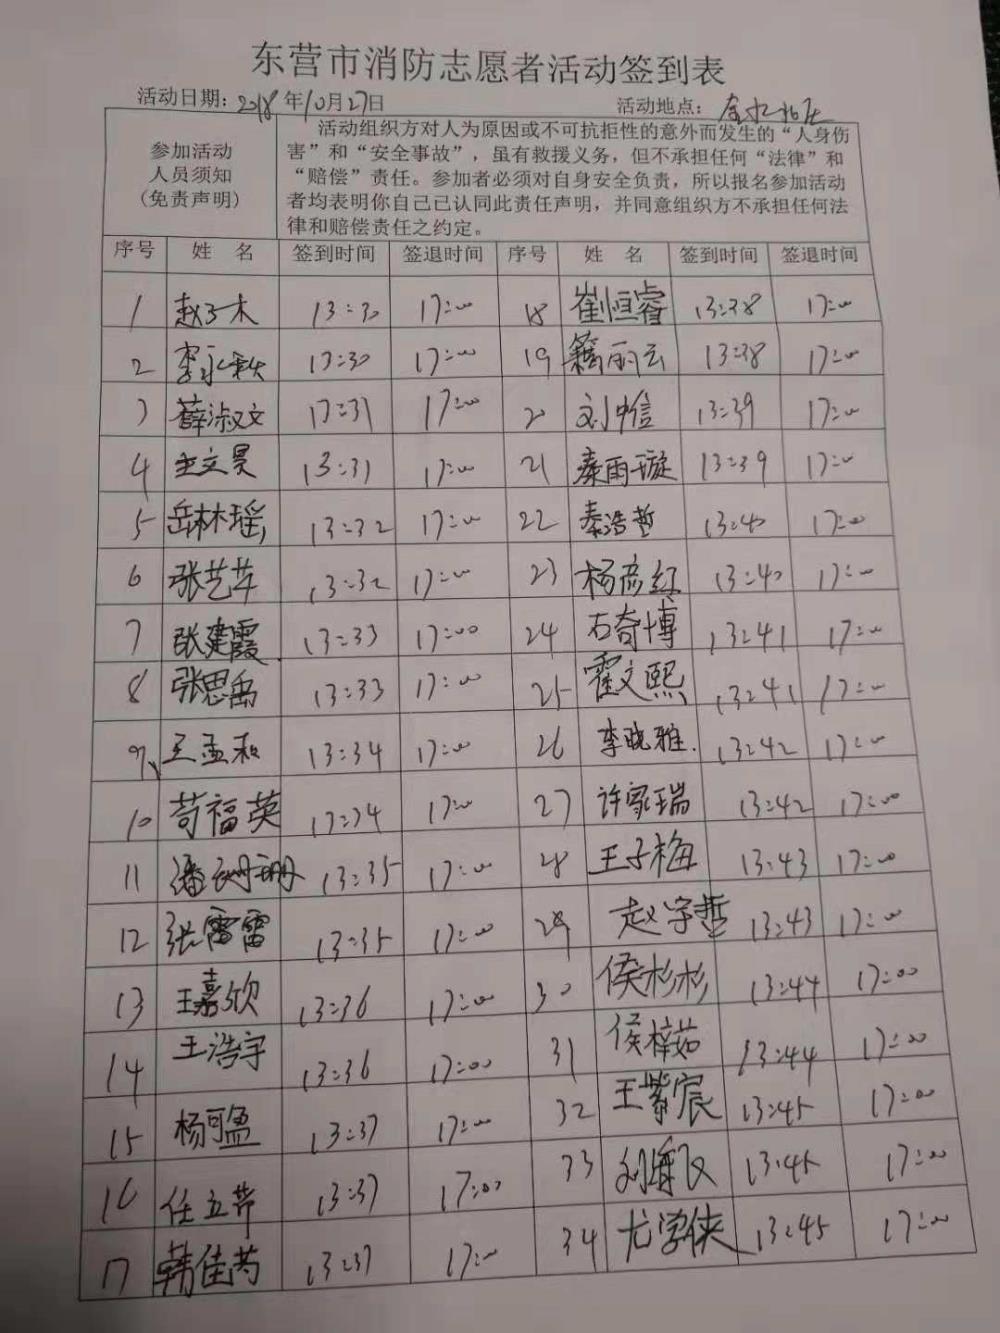 东营市消防志愿者活动签到表
活动日期：2018年10月27日 活动地点：
参加活动
人员须知
(免责声明)
活动组织方对人为原因或不可抗拒性的意外而发生的“人身伤
害”和“安全事故”，虽有救援义务，但不承担任何“法律”和
“赔偿”责任。参加者必须对自身安全负责，所以报名参加活动
者均表明你自己已认同此责任声明，并同意组织方不承担任何法
律和赔偿责任之约定。
序号 姓 名 签到时间 签退时间 序号 姓 名 签到时间 签退时间
1 赵子木 13:30 17:00 18 崔恒睿 13:38 17:00
2 李永秋 13:30 17:00 19 籍丽云 13:38 17:00
3 薛淑文 13:31 17:00 20 刘中信 13:39 17:00
4 王文昊 13:31 17:00 21 秦雨璇 13:39 17:00
5 岳林瑶 13:32 17:00 22 秦浩哲 13:40 17:00
6 张艺苹 13:32 17:00 23 杨彦红 13:40 17:00
7 张建霞 13:33 17:00 24 石奇博 13:41 17:00
8 张思禹 13:33 17:00 25 霍文熙 13:41 17:00
9 王孟和 13:34 17:00 26 李晓雅 13:42 17:00
10 苟福英 13:34 17:00 27 许家瑞 13:42 17:00
11 潘珊珊 13:35 17:00 28 王子梅 13:43 17:00
12 张雷雷 13:35 17:00 29 赵宇哲 13:43 17:00
13 王嘉欣 13:36 17:00 30 侯杉杉 13:44 17:00
14 王浩宇 13:36 17:00 31 侯梓茹 13:44 17:00
15 杨可盈 13:37 17:00 32 王紫宸 13:45 17:00
16 任 13:37 17:00 33 刘 13:45 17:00
17 韩佳芮 13:37 17:00 34 尤学侠 13:45 17:00